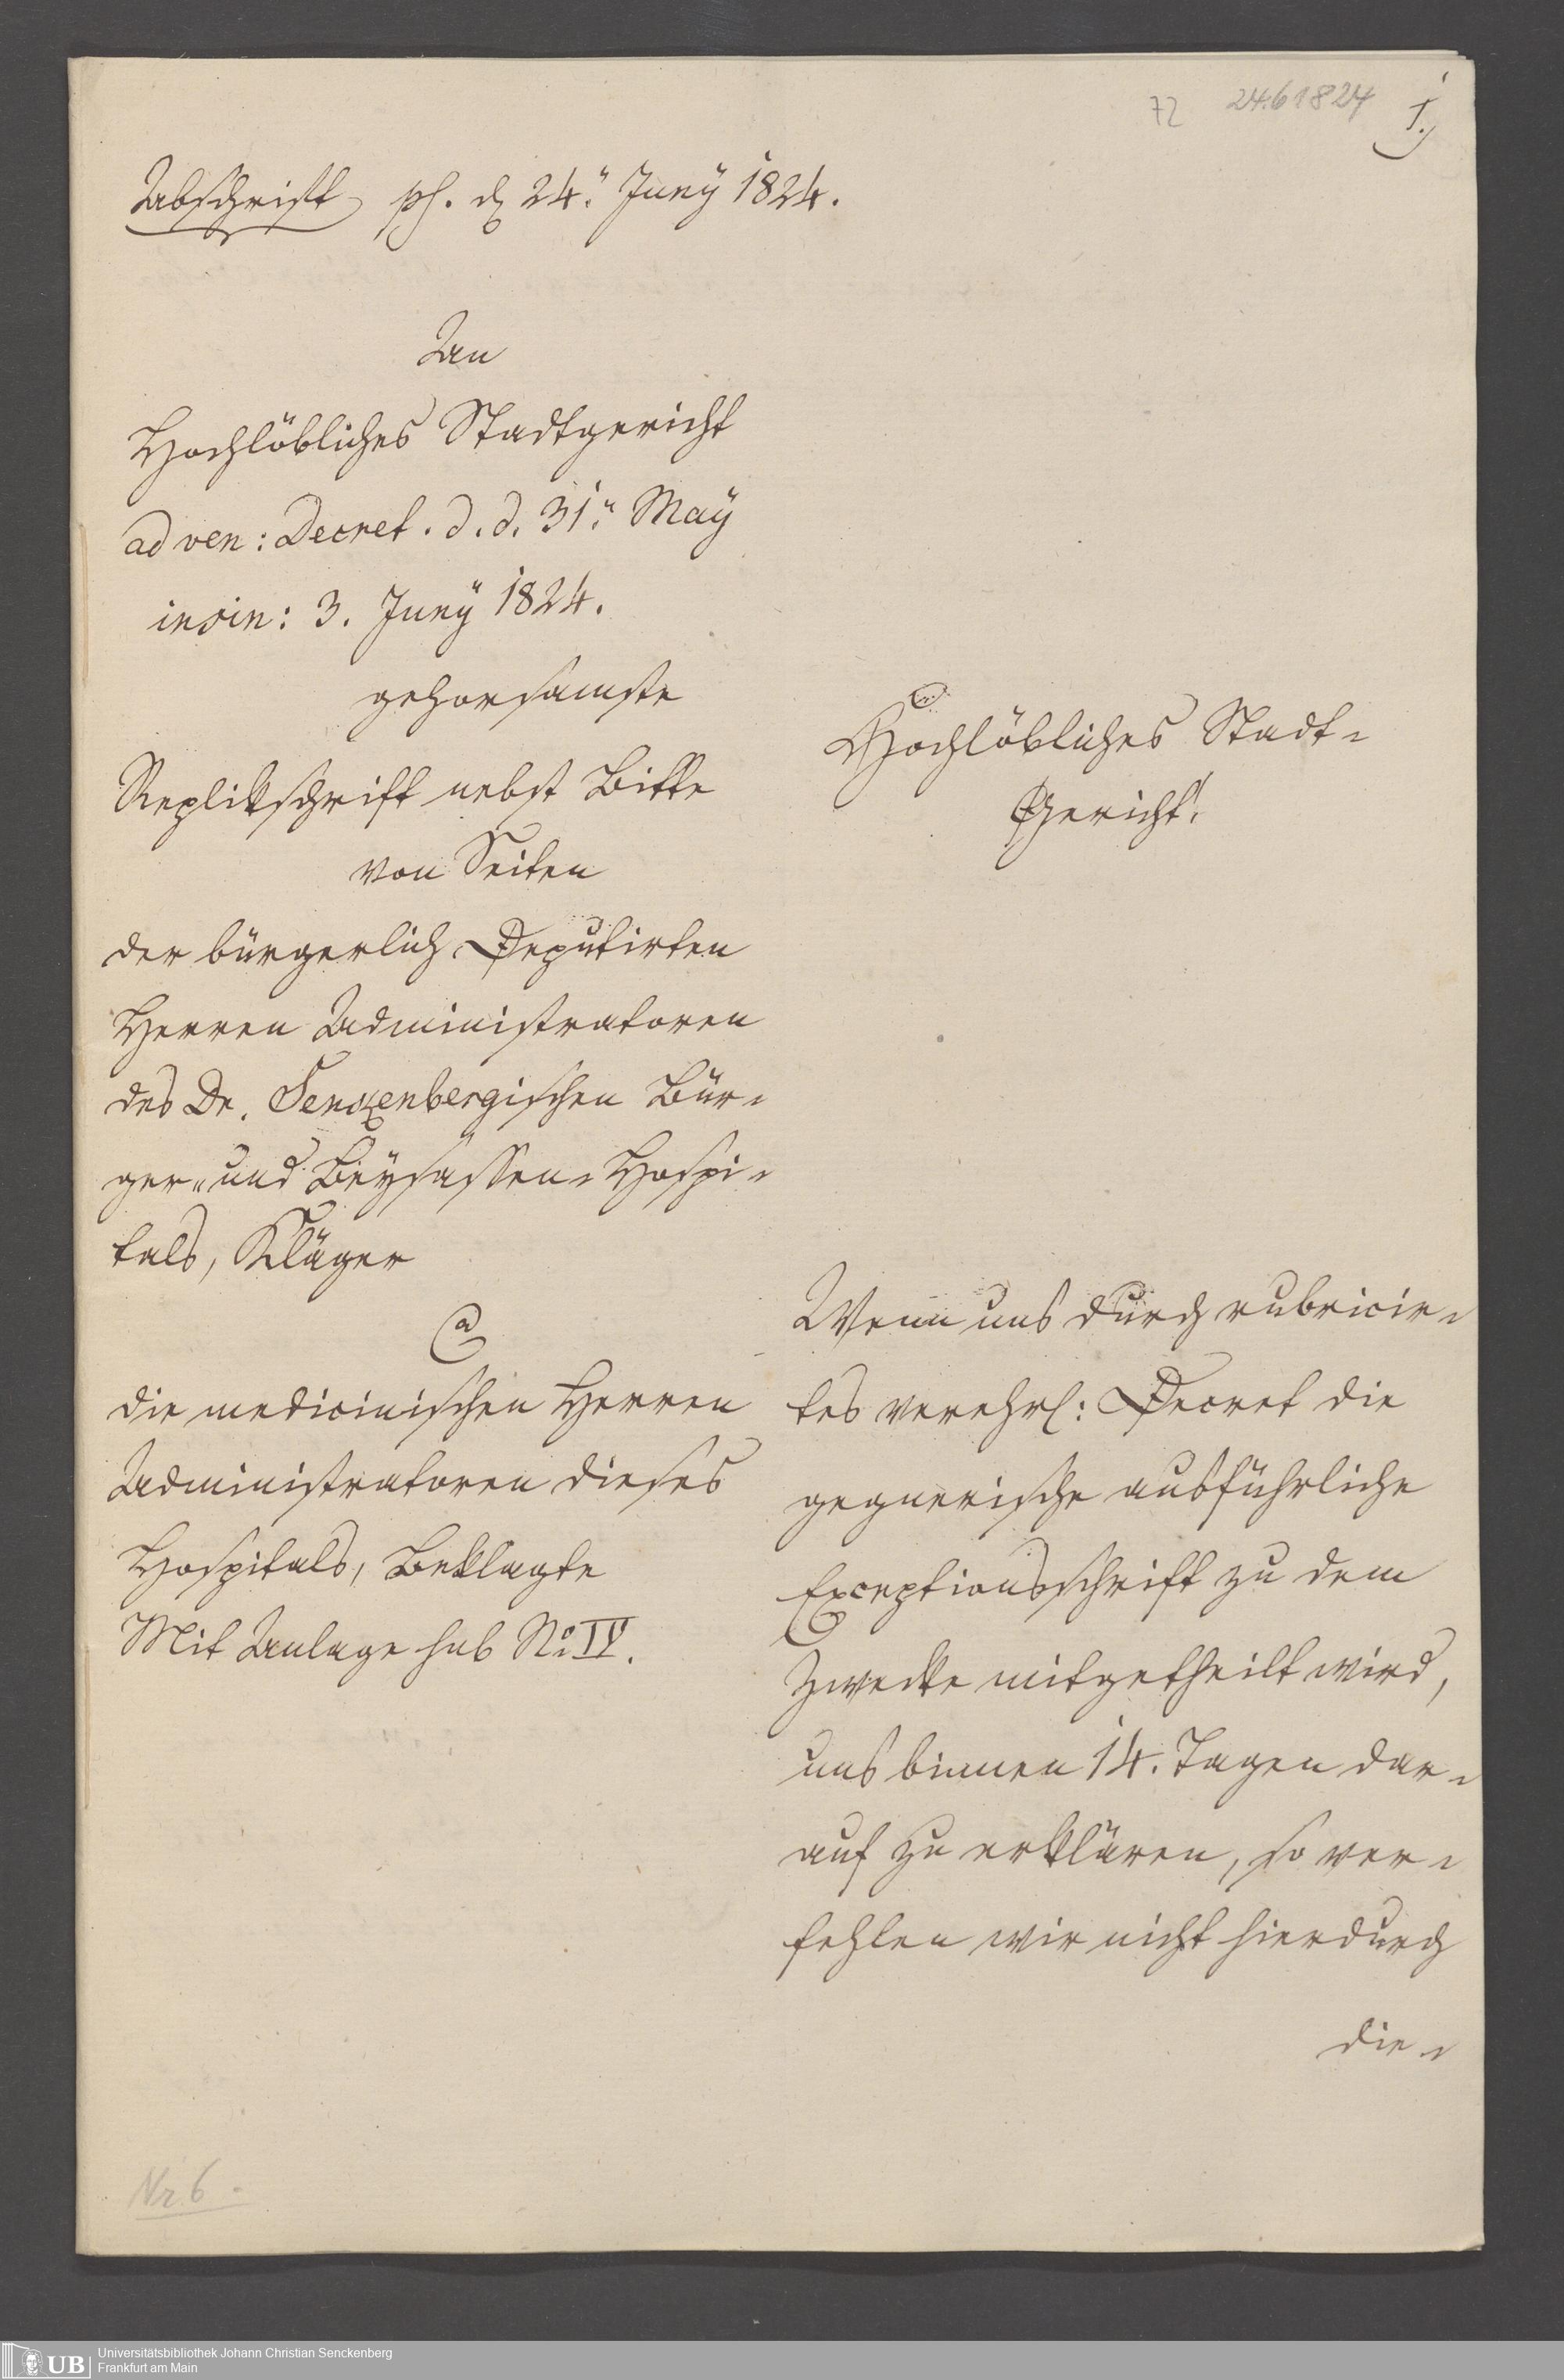 72 24.6 1824 1.
Abschrift ps. d 24." Juny 1824.
An
Hochlöbliches Stadtgericht
ad ven: Decret. d. d. 31." May
insin: 3. Juny 1824.
gehorsamste
Replikschrift nebst Bitte
von Seiten
der bürgerlich Deputirten
Herren Administratoren
des Dr. Senckenbergischen Bür-
ger- und Beysassen-Hospi-
tals, Kläger
Ca
die medicinischen Herren
Administratoren dieses
Hospitals, Beklagte
Mit Anlage sub No. IV.
Hochlöbliches Stadt-
Gericht!
Wenn uns durch rubricir-
tes verehrl: Decret die
gegnerische ausführliche
Exceptionsschrift zu dem
Zwecke mitgetheilt wird,
uns binnen 14. Tagen dar-
auf zu erklären, so ver-
fehlen wir nicht hierdurch
die-
Nr. 6.
UB
Universitätsbibliothek Johann Christian Senckenberg
Frankfurt am Main